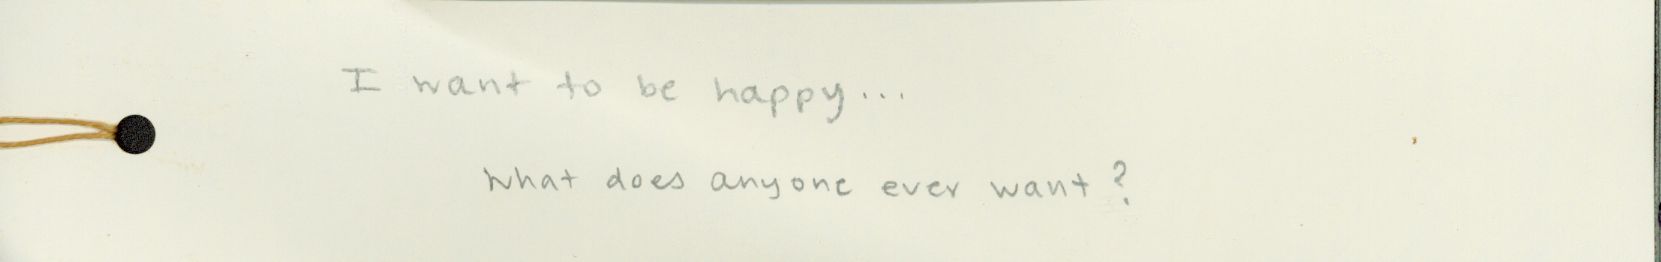 I want to be happy...
What does anyone ever want?